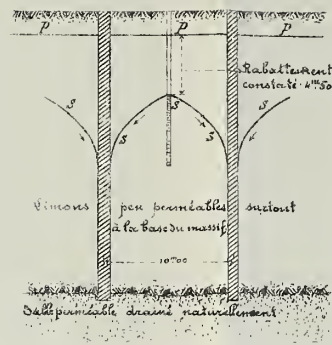 P P P
Rabattement
constaté. 4m50
S S S S
S S
Limons peu perméables surtout
à la base du massif
10m00
Sable perméable drainé naturellement